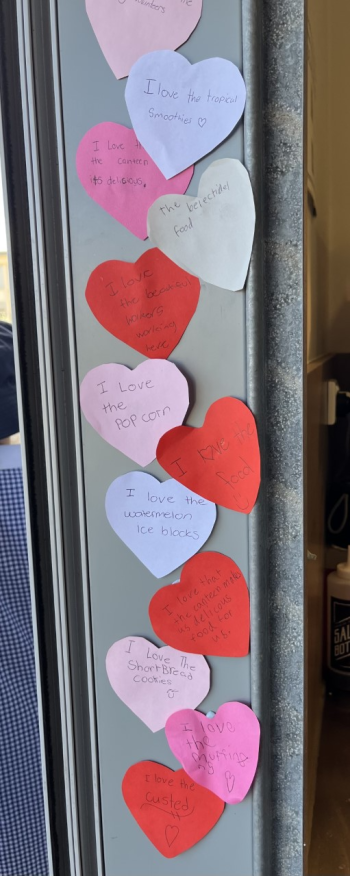 I love the tropical
Smoothies ♡
I Love
the canteen
it's delicious.
the
food
I love
the beautiful
working
here
I Love
the
POP corn
I love the
food
I love the
watermelon
Ice blocks
I love that
the canteen make
us delicous
food for
us.
I Love The
ShortBread
cookies
I love
the
I love the
custed
SAL
BOT